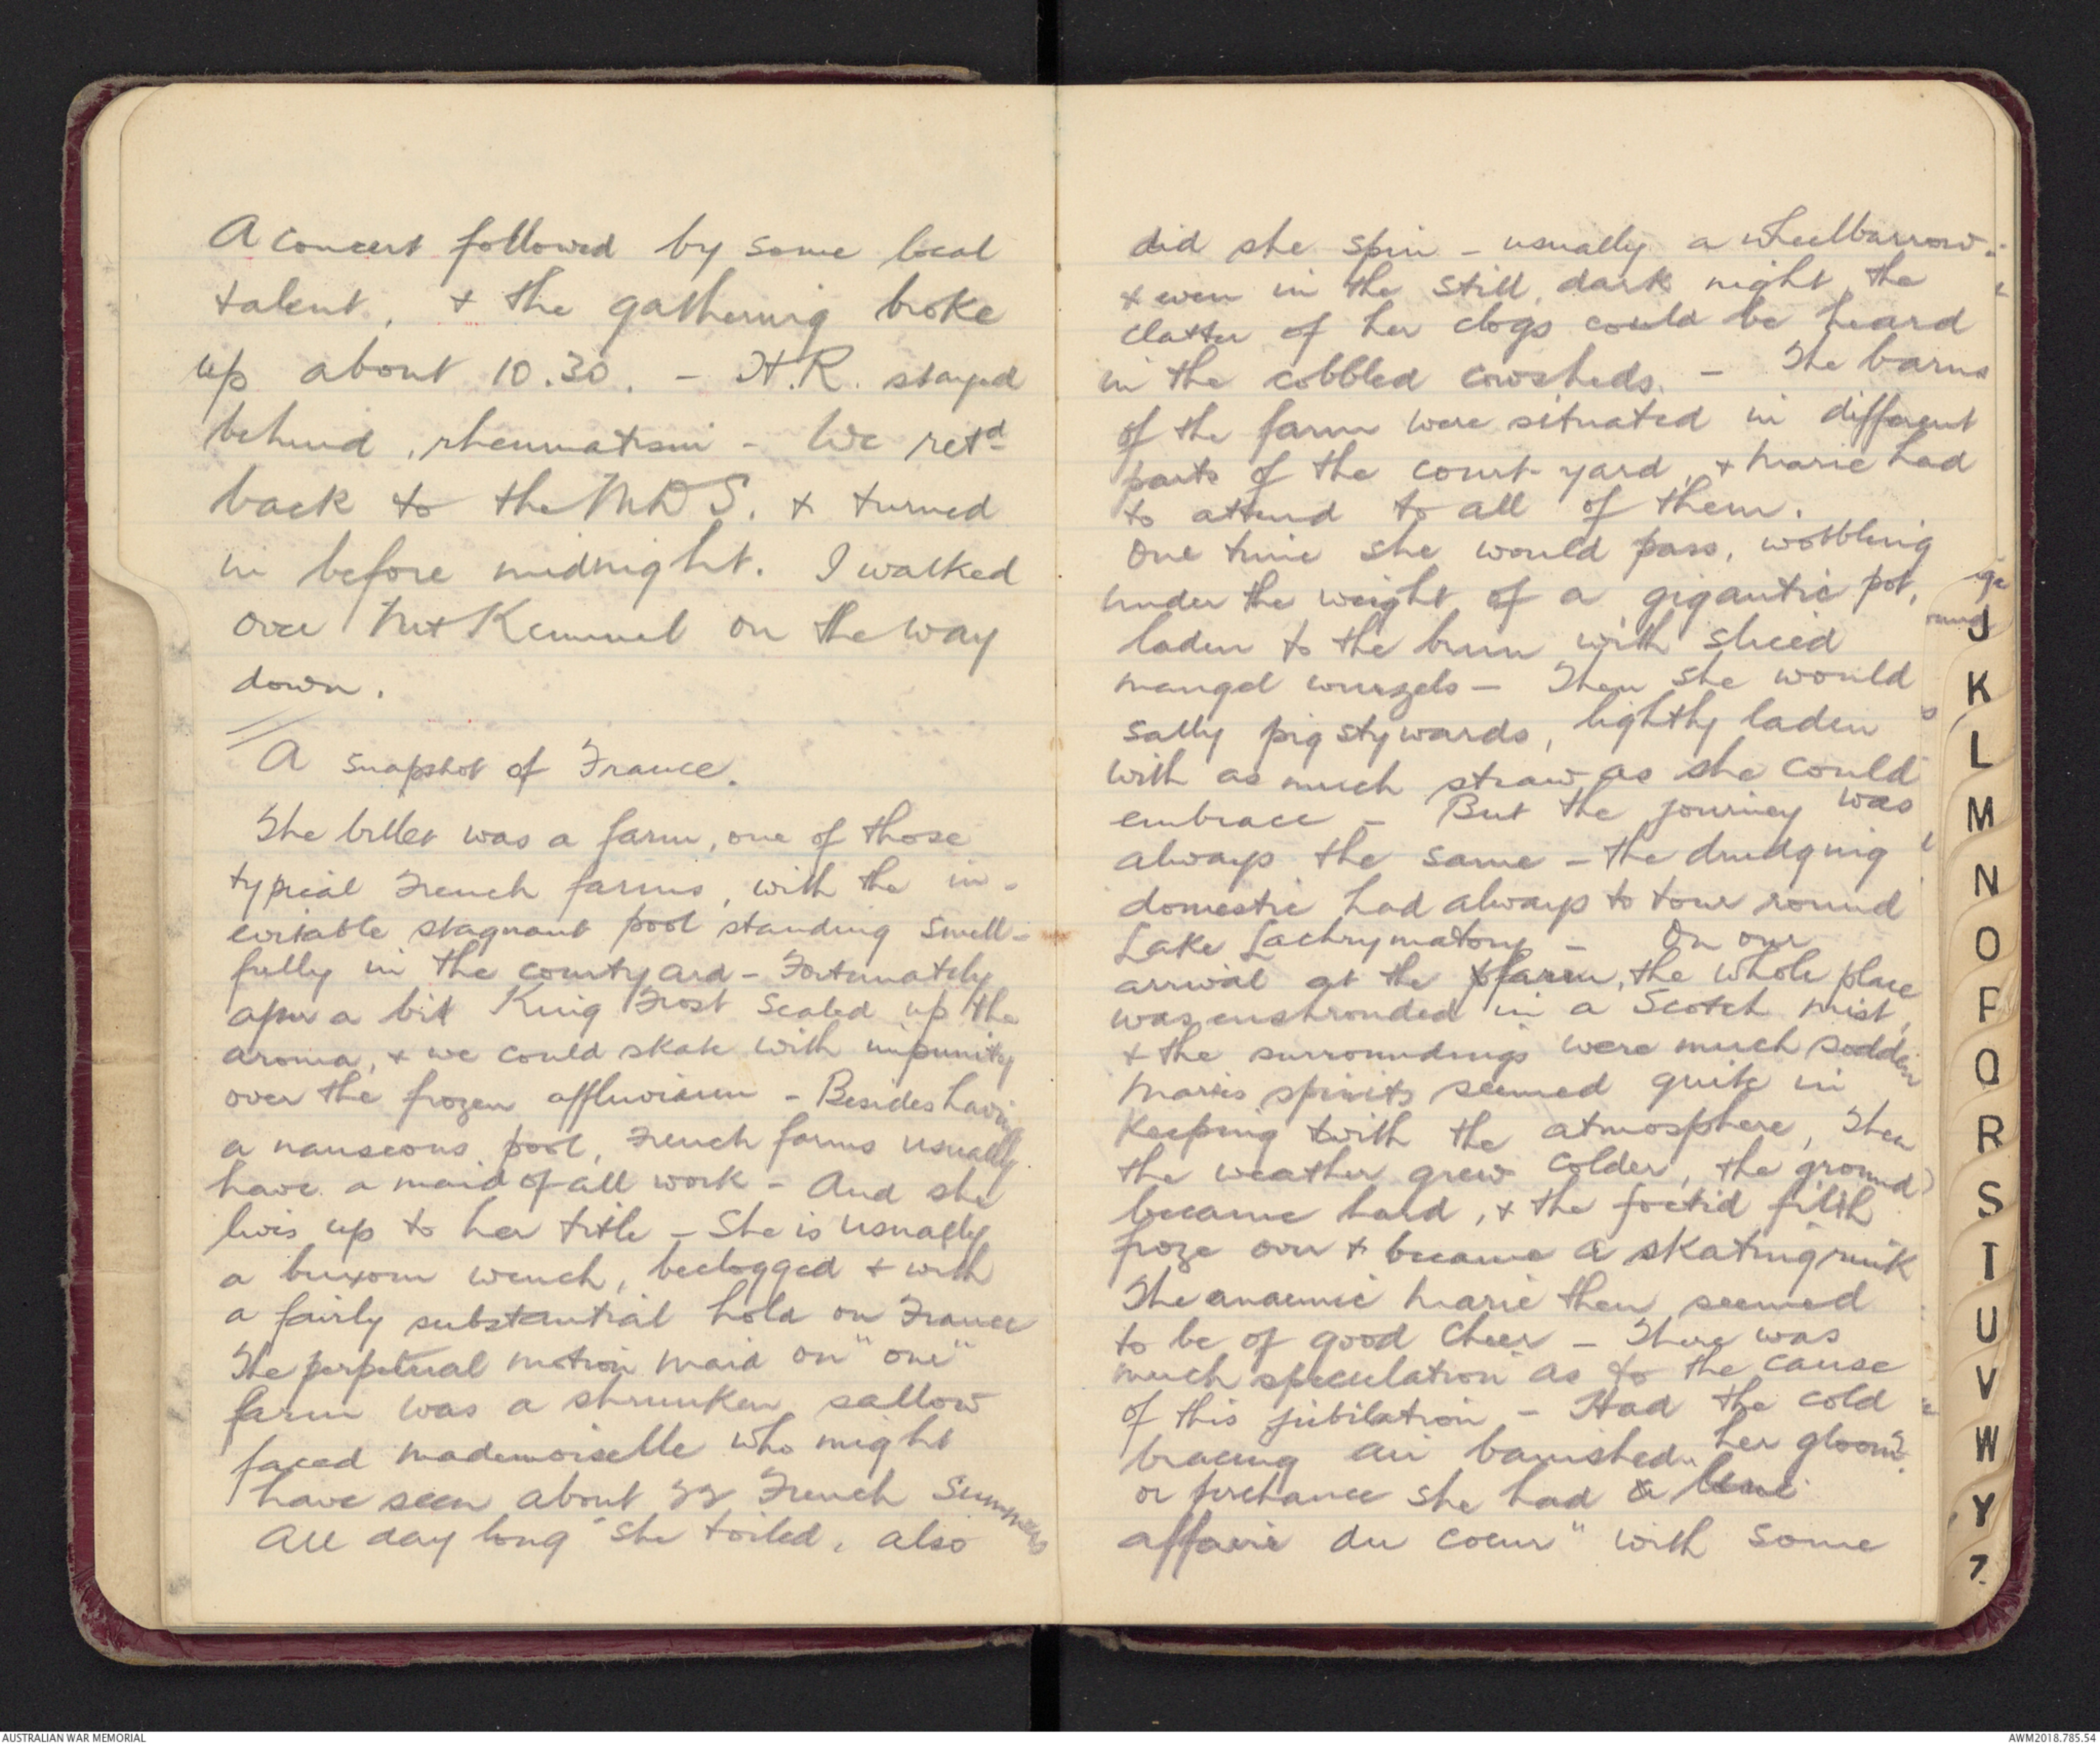 A concert followed by some local
talent, & the gathering broke
up about 10.30. - H.R. stayed
behind, rheumatism - We retd
back to the MDS. & turned
in before midnight. I walked
over Mt Kemmel on the way
down.
A snapshot of France.
The billet was a farm, one of those
typical French farms, with the in-
evitable stagnant pool standing smell-
fully in the courtyard - Fortunately
after a bit King Frost sealed up the
aroma, & we could skate with impunity
over the frozen affluvium - Besides having
a nauseous pool, French farms usually
have a maid of all work - And she
lives up to her title - She is usually
a buxom wench, beclogged & with
a fairly substantial hold on France
The perpetual motion maid on "one"
farm was a shrunken sallow
faced mademoiselle who might
have seen about 33 French Summers
All day long she toiled, also
did she spin - usually a wheelbarrow -
& even in the still, dark night, the
clatter of her clogs could be heard
in the cobbled cowsheds. - The barns
of the farm were situated in different
parts of the court-yard, & Marie had
to attend to all of them.
One time she would pass, wobbling
under the weight of a gigantic pot,
laden to the brim with sliced
mangel wurzels - Then she would
sally pigstywards, lightly laden
with as much straw as she could
embrace - But the journey was
always the same - the drudging
domestic had always to tour round
Lake Lachrymatory - On our
arrival at the farm, the whole place
was enshrouded in a Scotch mist,
& the surroundings were much sodden
Maries spirits seemed quite in
keeping with the atmosphere, Then
the weather grew colder, the ground
became hard, & the foetid filth
froze over & became a skating rink
The anaemic Marie then seemed
to be of good cheer - There was
much speculation as to the cause
of this jubilation - Had the cold
bracing air banished her gloom?
or perchance she had a
affaire du coeur" with some
J
K
L
M
N
O
P
Q
R
S
T
U
V
W
Y
Z
AUSTRALIAN WAR MEMORIAL
AWM2018.785.54